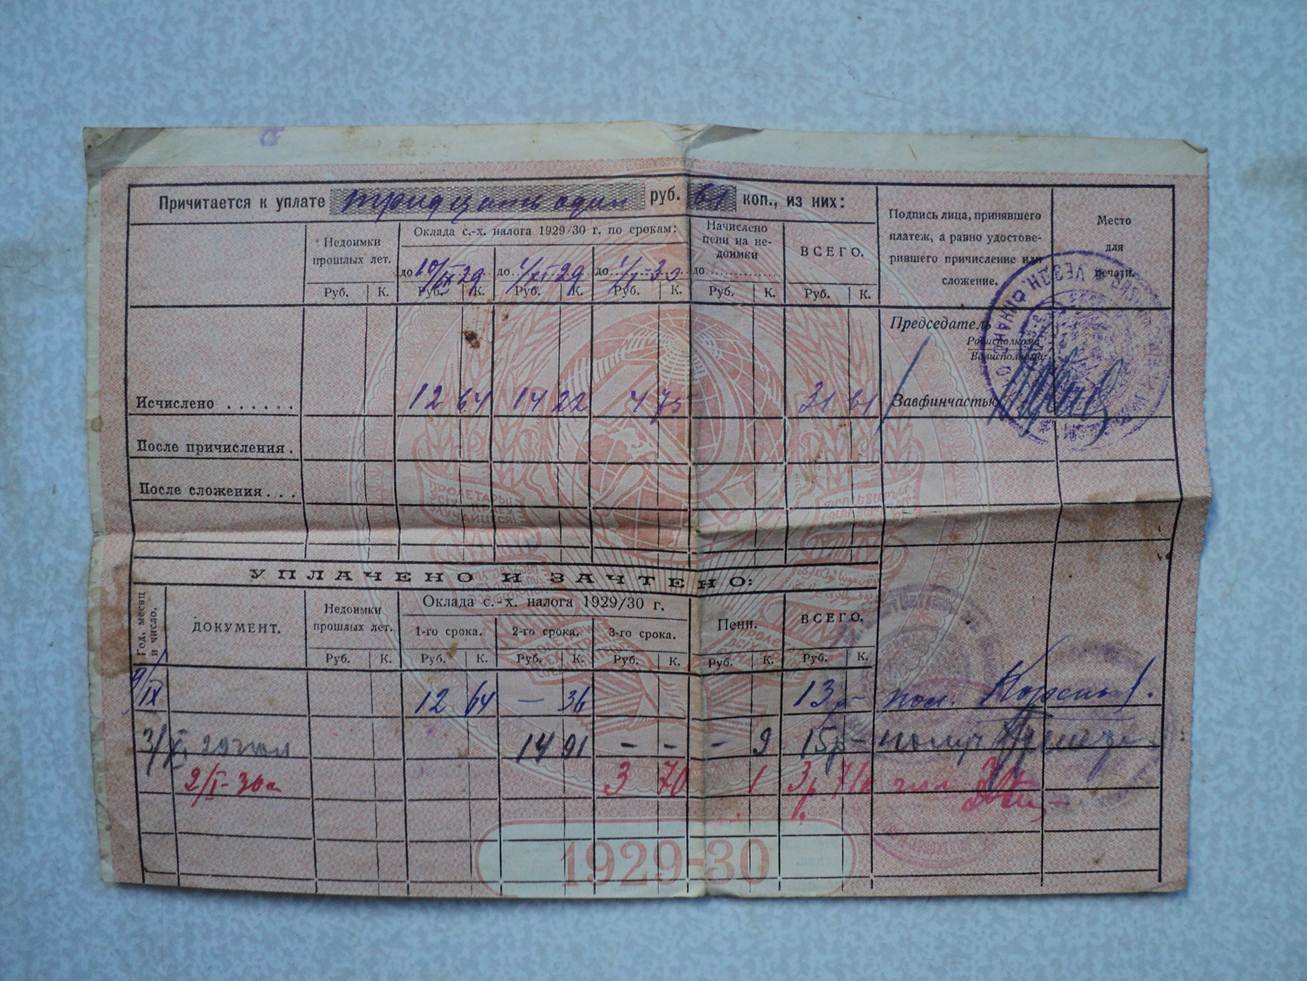 Причитается к уплате тридцать один руб. 61 коп., из них:
Недоимки прошлых лет.
Оклада с.-х. налога 1929/30 г. по срокам:
Начислено пени на недоимки
ВСЕГО.
Подпись лица, принявшего
платеж, а равно удостове-
рившего причисление или
сложение.
Место
для
печати.
до 10/IX 29 до 1/XI 29 до 1/I-30 до
Руб. К. Руб. К. Руб. К. Руб. К. Руб. К. Руб. К.
Председатель
Райисполкома
Волисполкома
Исчислено 12 64 14 22 4 75 31 61
Завфинчастью
После причисления
После сложения
УПЛАЧЕНО И ЗАЧТЕНО:
Год, месяц и число.
ДОКУМЕНТ.
Недоимки прошлых лет.
Оклада с.-х. налога 1929/30 г.
1-го срока. 2-го срока. 3-го срока.
Пени.
ВСЕГО.
Руб. К. Руб. К. Руб. К. Руб. К. Руб. К. Руб. К.
9/IX 12 64 — 36 13р- пол.
14 01 - - - 9 15р- получ
2/I-30г 3 70 1 3р 71к
1929-30